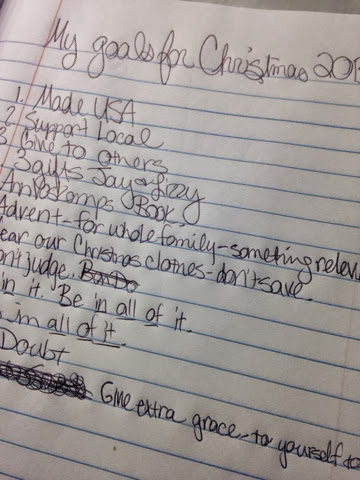 My goals for Christmas 201
1. Made USA
2 Support Local
3 Give to others
3 gifts Jay & Lizzy
Ann Voskamps Book
Advent - for whole family - something relev
ear our Christmas clothes - don't save.
n't judge.
in it. Be in all of it.
in all of it.
Doubt
Give extra grace - to yourself to